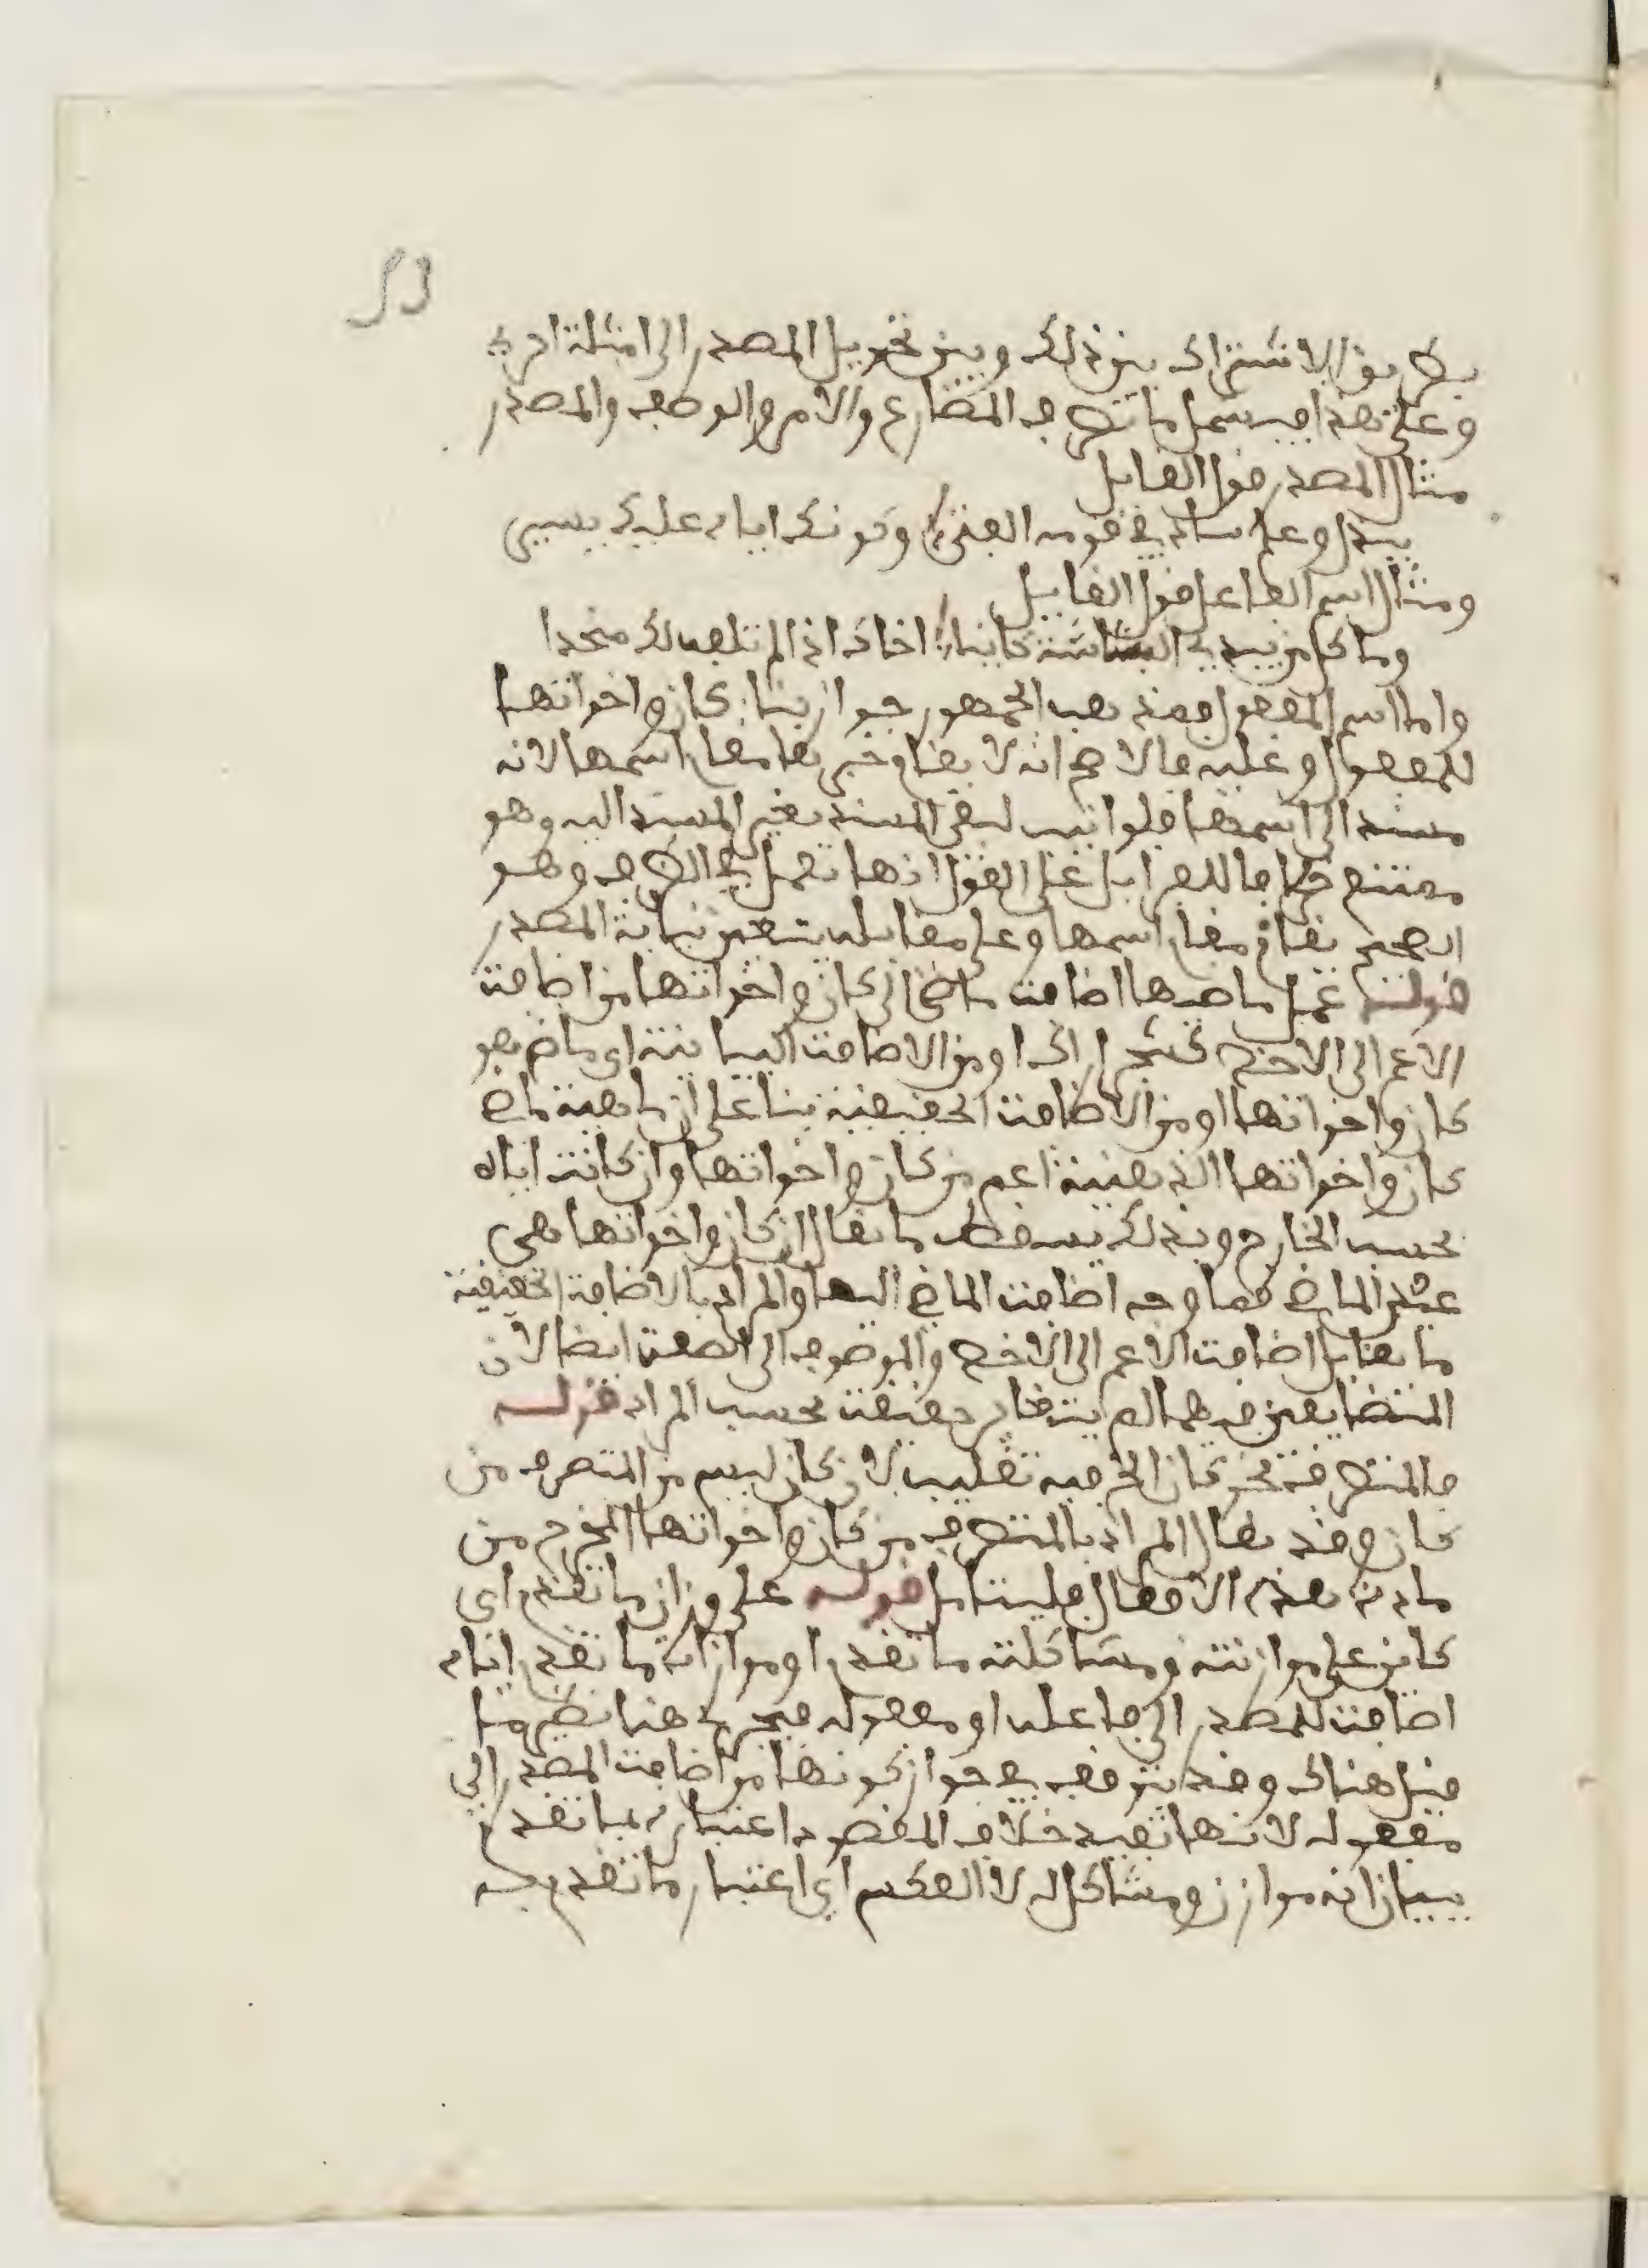 بطريق الاشتراك بين ذلك وبين تحويل المصدر الى امثلة اخرى
وعلى هذا فيشمل ما تصرف المضارع والامر والوصف والمصدر
مثال المصدر قول القايل
ببذل وحلم ساد في قومه الفتى وكونك اياه عليك يسير
ومثال اسم الفاعل قول القايل
وما كل من يبدي البشاشة كاينا اخاك اذا لم تلفه لك منجدا
واما اسم المفعول فمذهب الجمهور جواز بناء كان واخواتها
للمفعول وعليه فالاصح انه لا يقام خبرها مقام اسمها لانه
مسند الى اسمها فلو انيب لبقي المسند بغير المسند اليه وهو
ممتنع خلافا للفرا بل على القول انها تعمل في الظرف وهو
الصحيح يقام مقام اسمها وعلى مقابله يتعين نيابة المصدر
قوله عمل ماضيها اضافة ماضي الى كان واخواتها من اضافة
الاعم الى الاخص كشجر اراك او من الاضافة البيانية اي ماض هو
كان واخواتها او من الاضافة الحقيقية بنا على ان ماهية ماضي
كان واخواتها الذهنية اعم من كان واخواتها وان كانت اياه
بحسب الخارج وبذلك يسقط ما يقال ان كان واخواتها هي
عين الماضي فما وجه اضافة الماضي اليها والمراد بالاضافة الحقيقية
ما يقابل اضافة الاعم الى الاخص والموصوف الى الصفة ايضا لان
المتضايفين فيهما لم يتغاير حقيقة بحسب المراد قوله
فالمتصرفة نحو كان الخ فيه تغليب لان كان ليس من المتصرف من
كان وقد يقال المراد بالمتصرف من كان واخواتها المخرج من
مادة هذه الافعال فليتامل قوله على وزان ما تقدم اي
كاين على موازنته ومشاكلته ما تقدم او موازاة ما تقدم اياه
اضافة للمصدر الى فاعله او مفعوله فيجري هنا نظير ما
قيل هناك وقد يتوقف في جواز كونها من اضافة المصدر الى
مفعوله لانها تفيد خلاف المقصود اعتباره لما تقدم
ببيان انه موازن ومشاكل له لا العكس اي اعتبار ما تقدم به